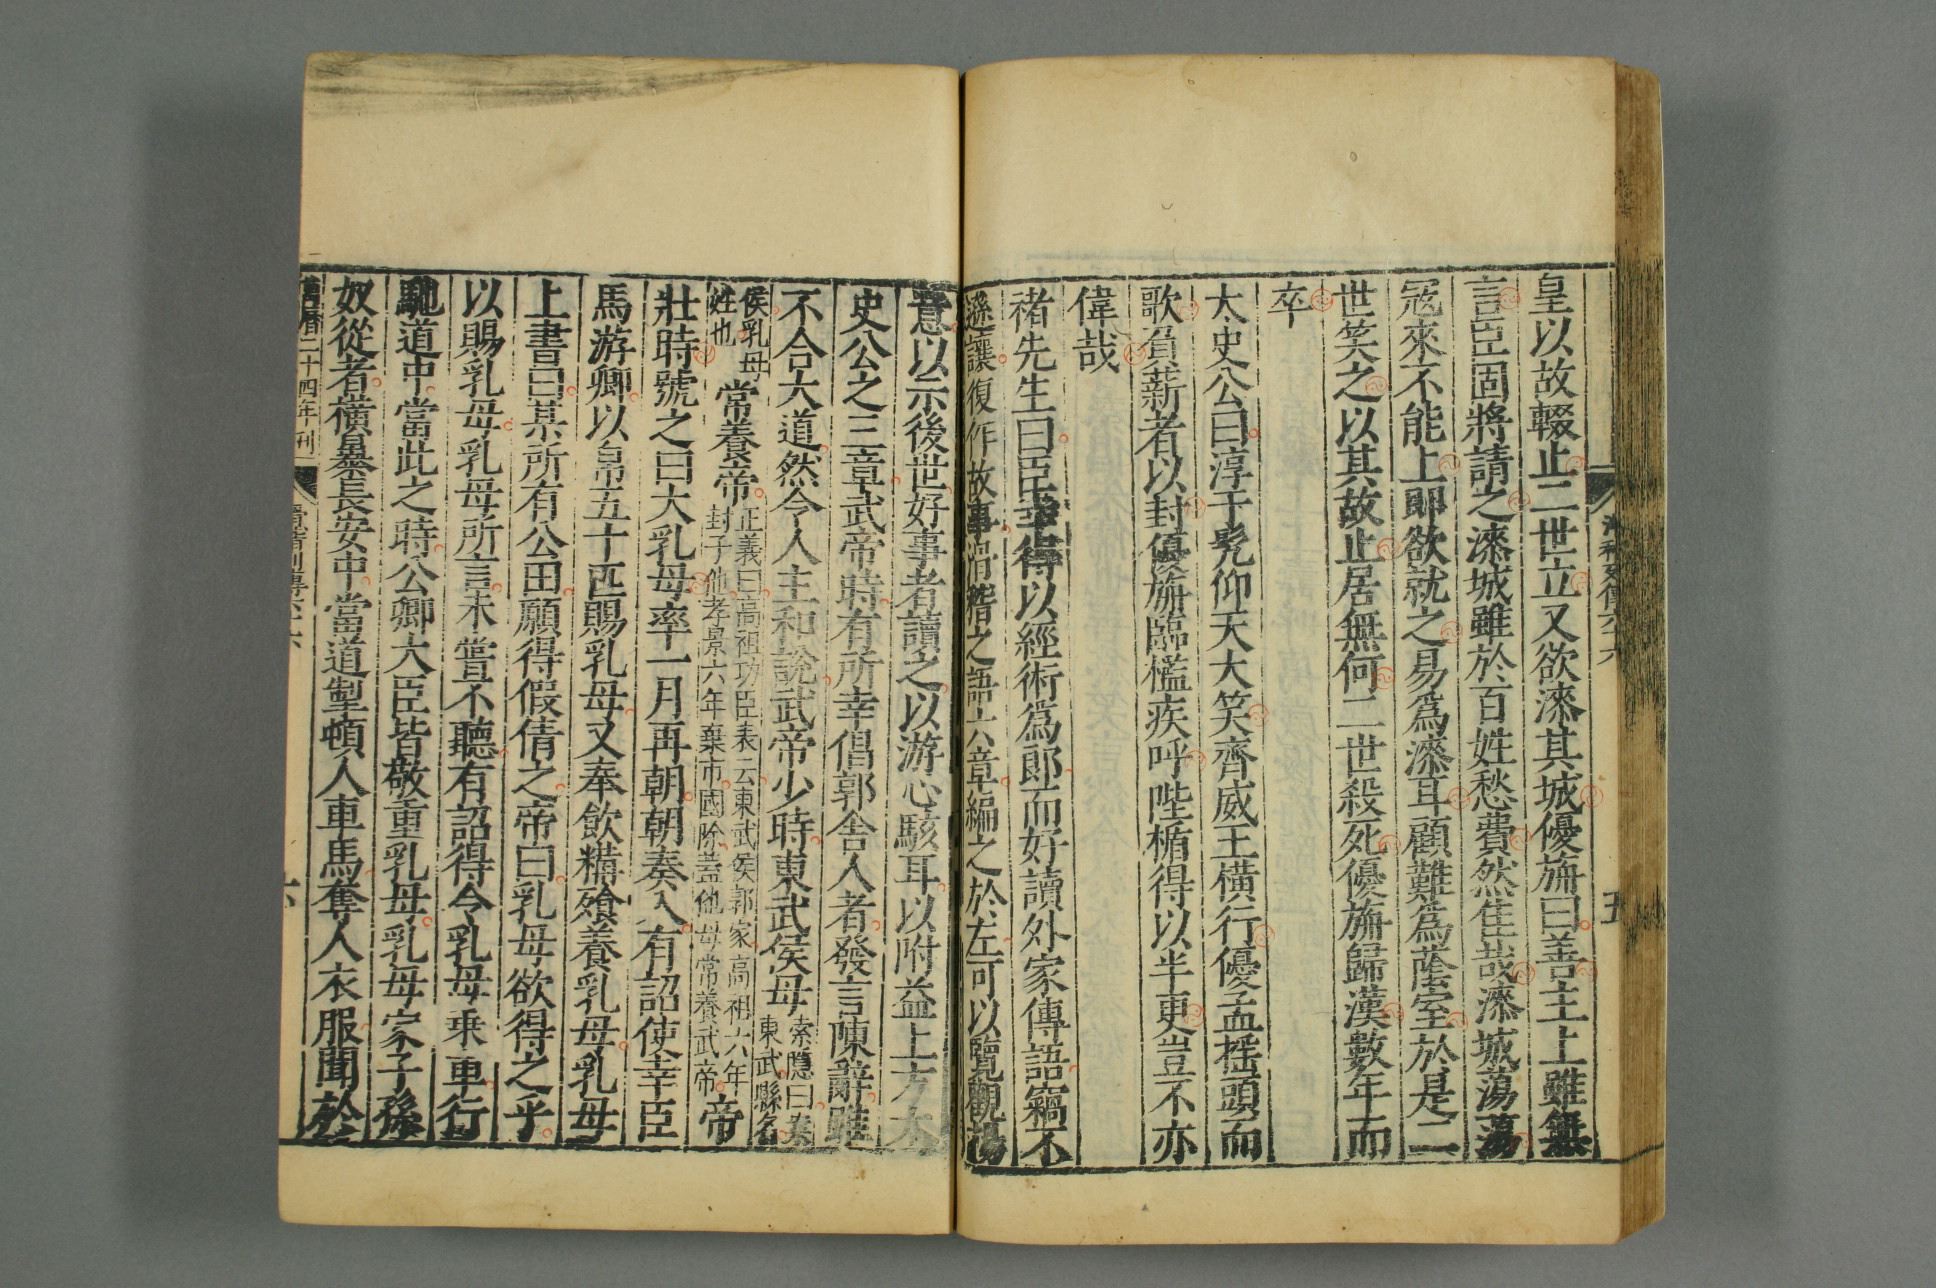 皇以故輟止二世立又欲漆其城優旃曰善主上雖無
言臣固將請之漆城雖於百姓愁費然佳哉漆城蕩蕩
寇來不能上即欲就之易爲漆耳顧難爲蔭室於是二
世笑之以其故止居無何二世殺死優旃歸漢數年而
卒
太史公曰淳于髡仰天大笑齊威王橫行優孟揺頭而
歌負薪者以封優旃臨檻疾呼陛楯得以半更豈不亦
偉哉
禇先生曰臣幸得以經術爲郎而好讀外家傳語竊不
遜讓復作故事滑稽之語六章編之於左可以覽觀揚
意以示後世好事者讀之以游心駭耳以附益上方太
史公之三章武帝時有所幸倡郭舍人者發言陳辭雖
不合大道然令人主和說武帝少時東武侯母索隱曰案東武縣名
侯乳母姓也常養帝正義曰高祖功臣表云東武侯郭家高祖六年封子他孝景六年棄市國除蓋他母常養武帝帝
壯時號之曰大乳母率一月再朝朝奏入有詔使幸臣
馬游卿以帛五十匹賜乳母又奉飲糒飱養乳母乳母
上書曰某所有公田願得假倩之帝曰乳母欲得之乎
以賜乳母乳母所言未嘗不聽有詔得令乳母乘車行
馳道中當此之時公卿大臣皆敬重乳母乳母家子孫
奴從者橫暴長安中當道掣頓人車馬奪人衣服聞於
萬曆二十四年刊
滑稽列傳六十六
六
滑稽列傳六十六
五